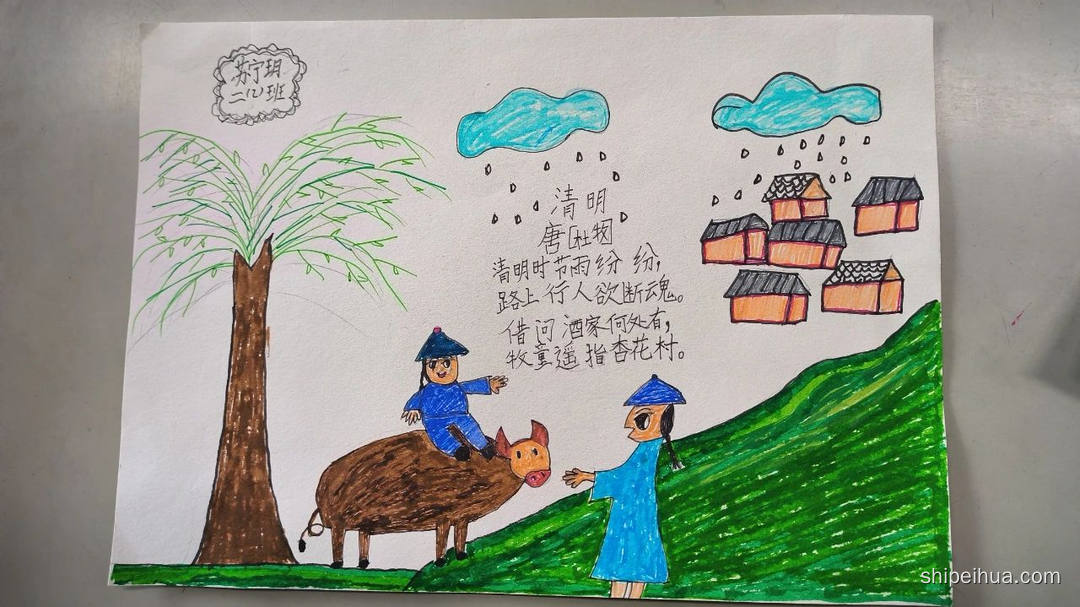 苏宁玥
二(2)班
清明
唐[杜牧]
清明时节雨纷纷,
路上行人欲断魂。
借问酒家何处有,
牧童遥指杏花村。
shipeihua.com